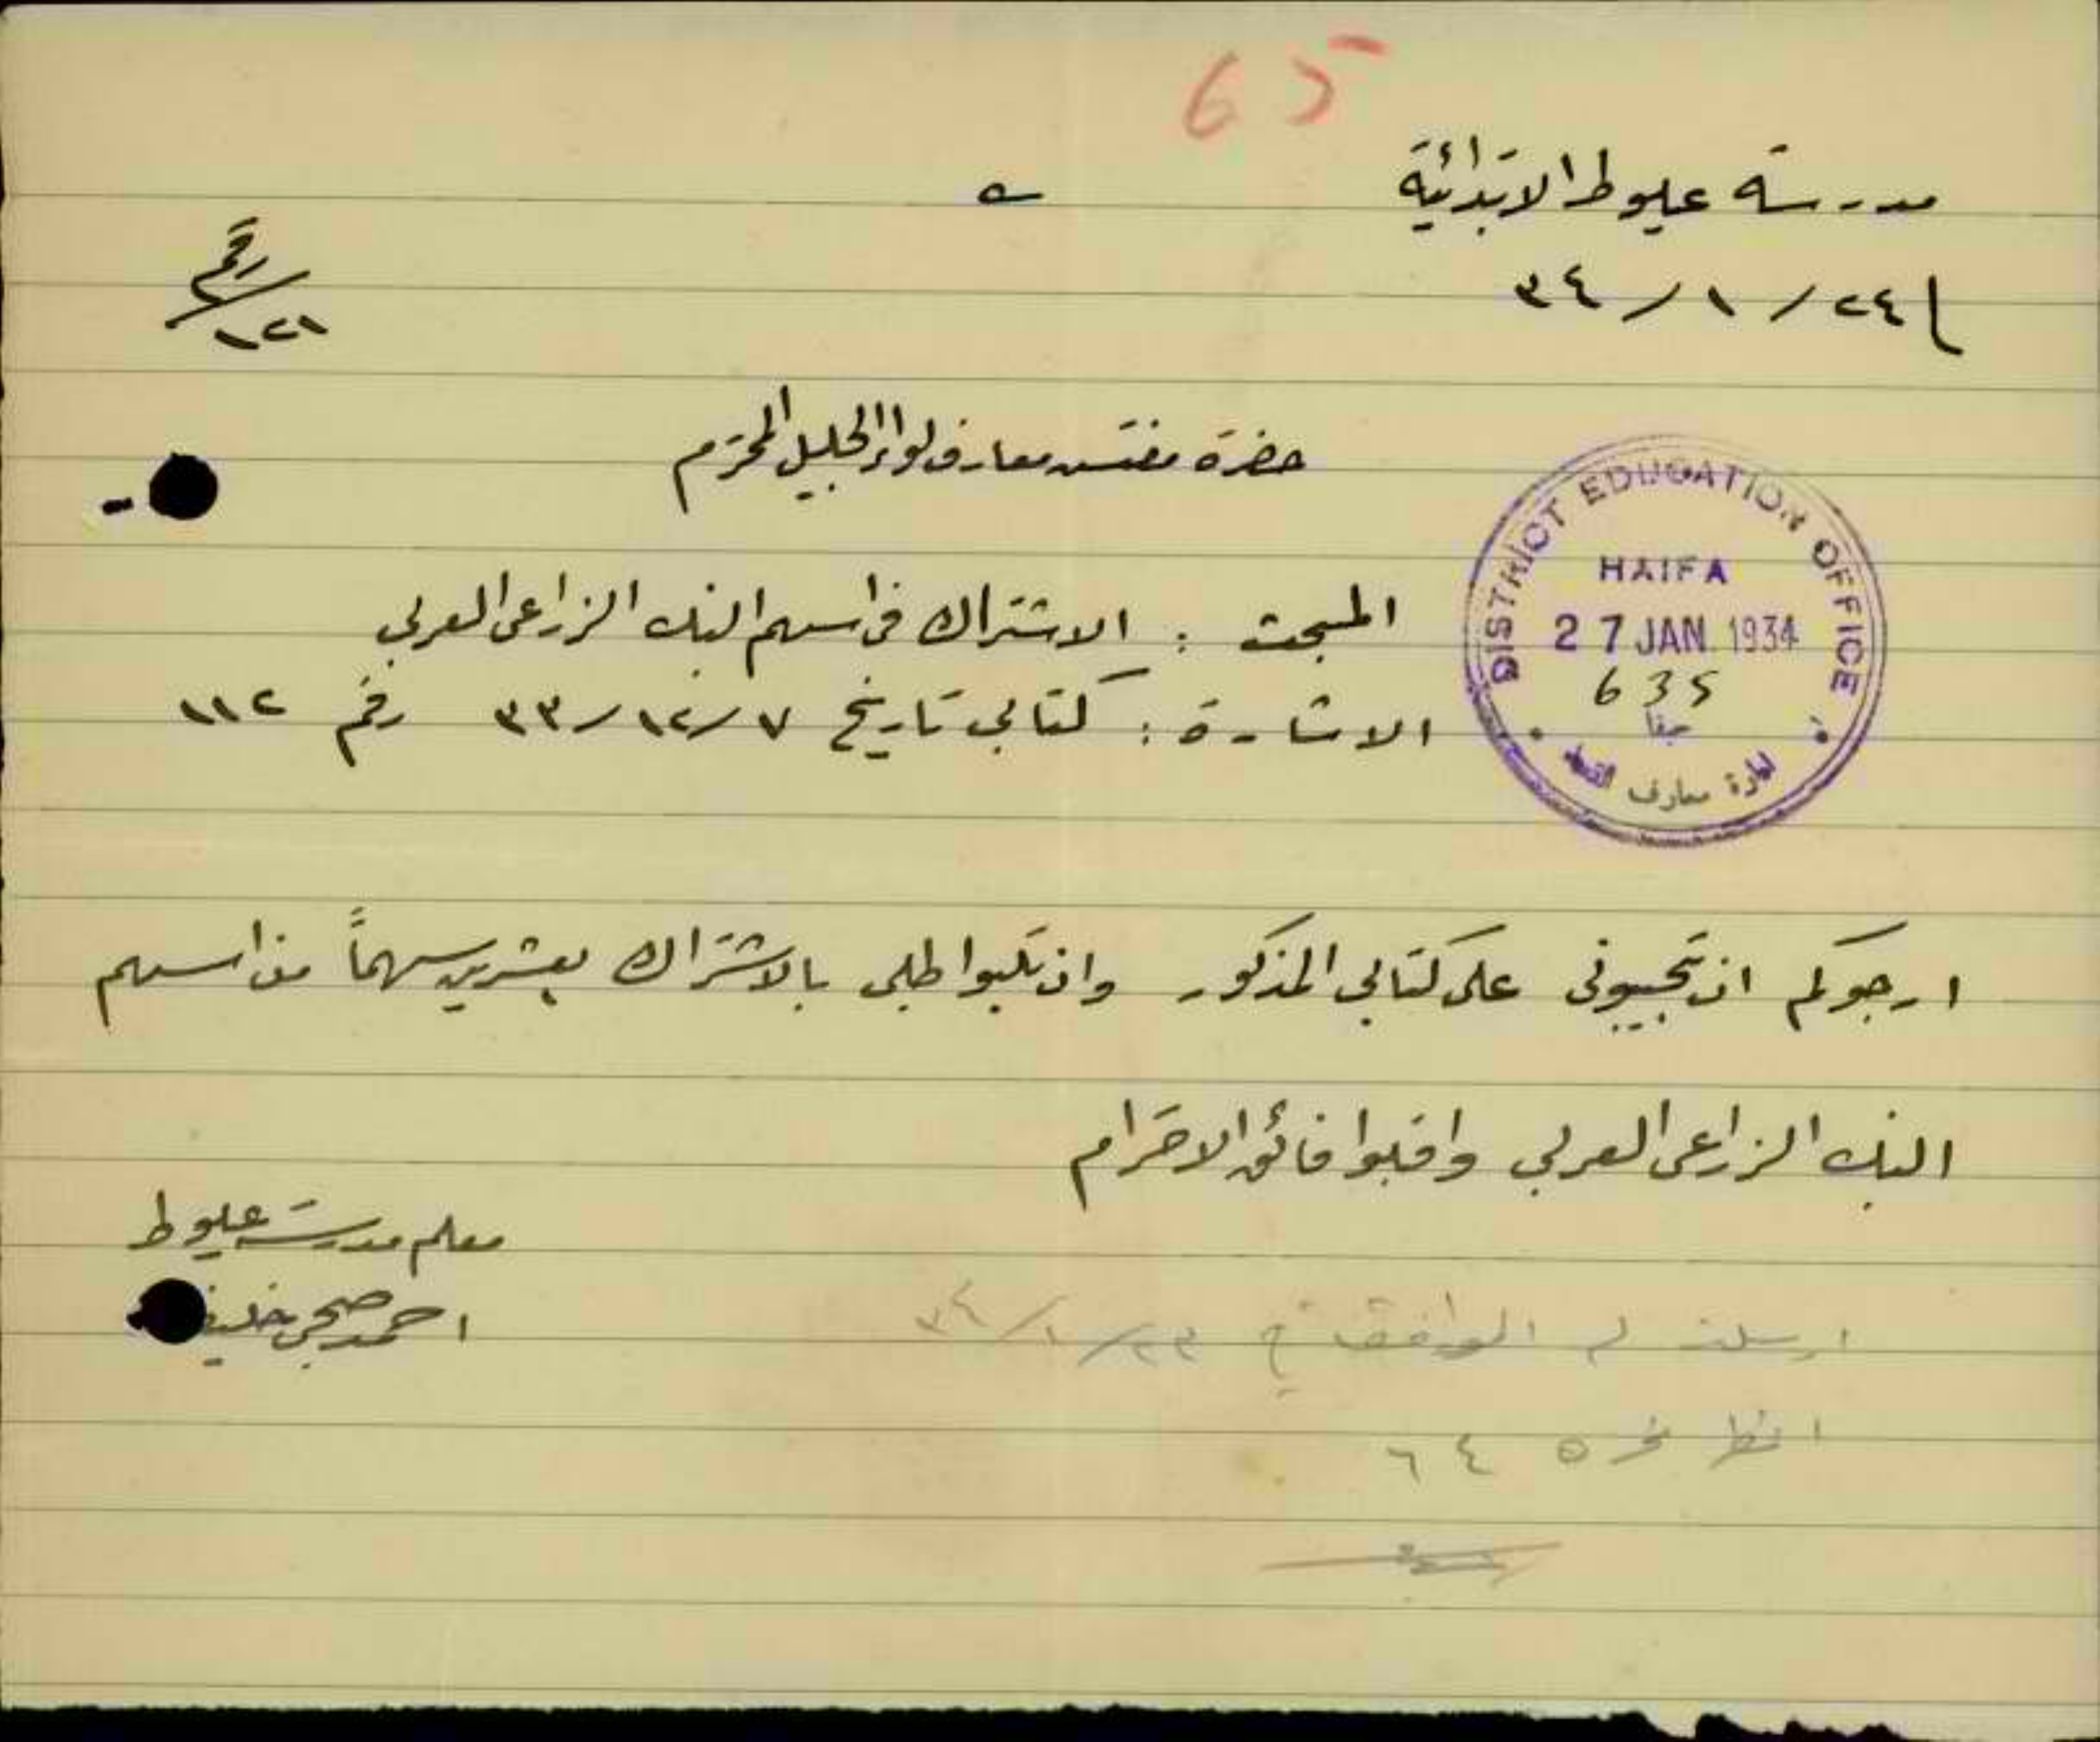 65
مدرسة عيلوط الابتدائية
٢٤/١/٣٤
رقم
١٢١
حضرة مفتش معارف لواء الجليل المحترم
DISTRICT EDUCATION OFFICE
HAIFA
27 JAN 1934
635
حيفا
ادارة معارف
المبحث : الاشتراك في اسهم البنك الزراعي العربي
الاشارة : كتابي تاريخ ٧/١٢/٣٣ رقم ١١٢
ارجوكم ان تجيبوني على كتابي المذكور وان تلبوا طلبي بالاشتراك بعشرين سهماً من اسهم
البنك الزراعي العربي واقبلوا فائق الاحترام
معلم مدرسة عيلوط
احمد صبحي خليفة
ارسلت لم الموافقة في ٢٣/١/٣٤
انظر نمرة ٦٤